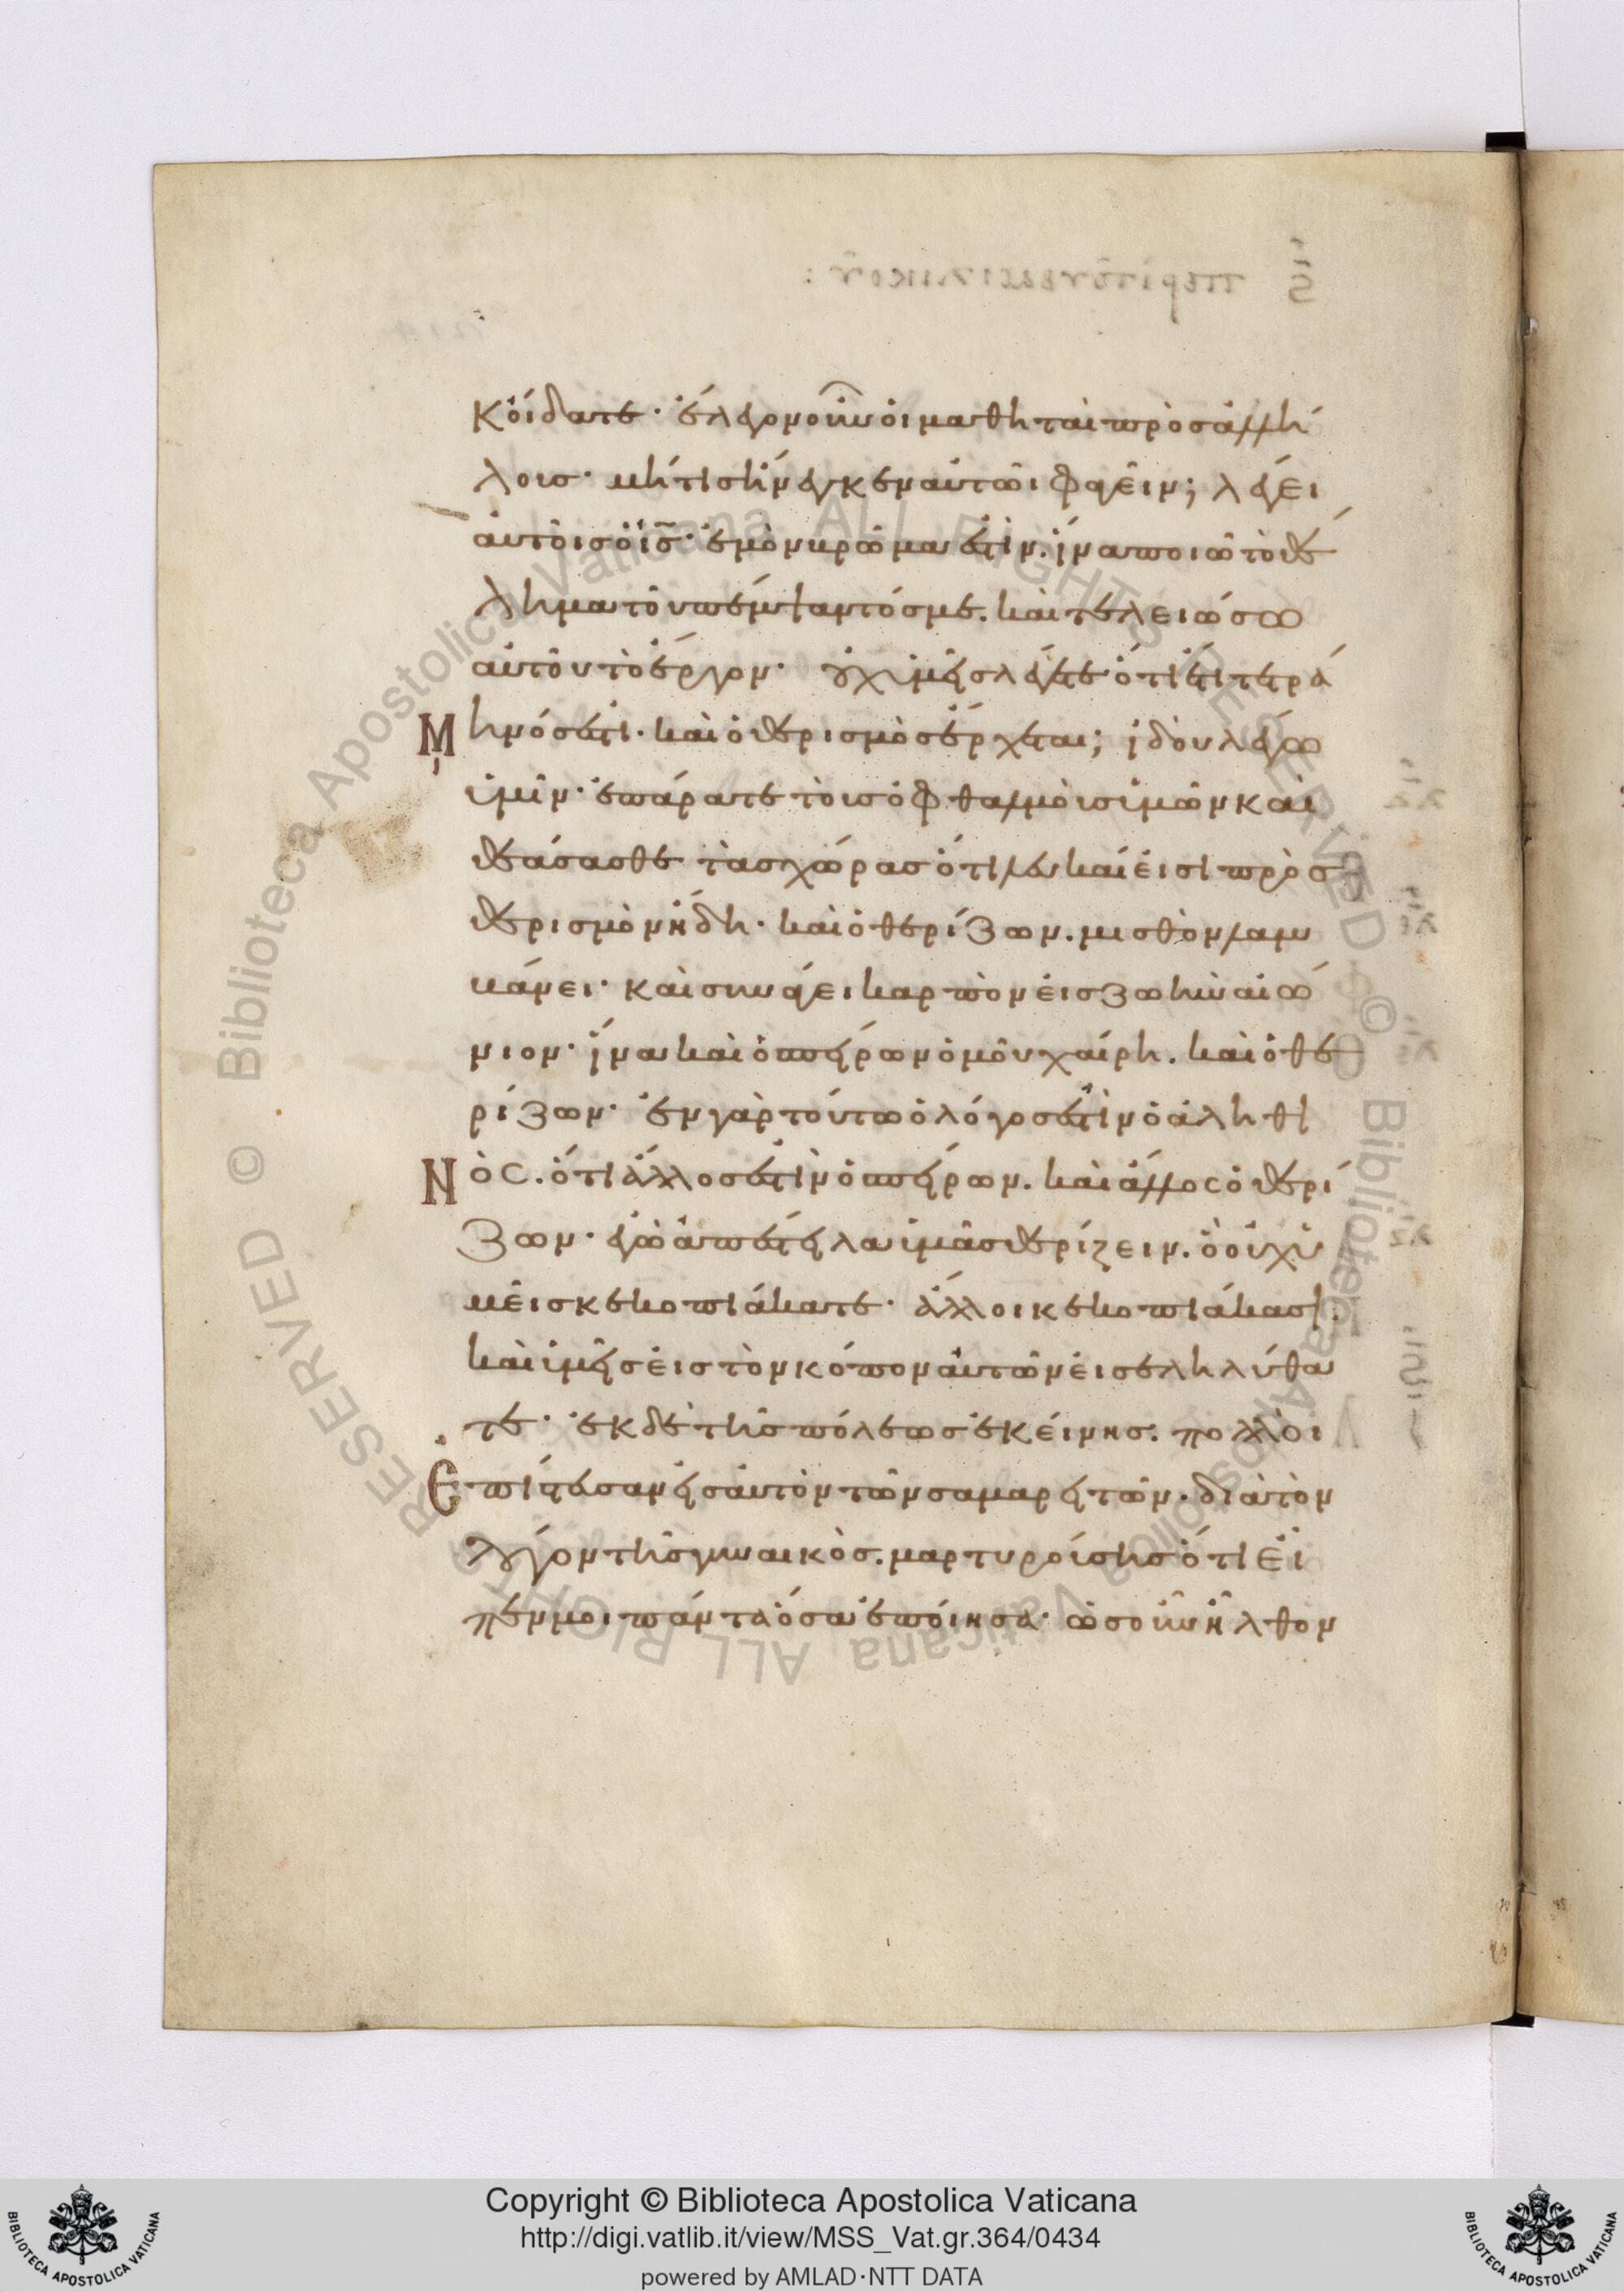 κ οἴδατε· ἔλεγον οὖν οἱ μαθηταὶ πρὸς ἀλλή
λοις· μή τις ἤνεγκεν αὐτῶι φαγεῖν; λέγει
αὐτοῖς ὁ ἰς̅· ἐμὸν βρῶμα ἐστὶν. ἵνα ποιῶ τὸ θέ
λημα τοῦ πέμψαντός με. καὶ τελειώσω
αὐτοῦ τὸ ἔργον· οὐχ ὑμεῖς λέγετε ὅτι ἔτι τετρά
μηνός ἐστι· καὶ ὁ θερισμὸς ἔρχεται; ἰδοὺ λέγω
ὑμῖν· ἐπάρατε τοὺς ὀφθαλμοὺς ὑμῶν καὶ
θεάσασθε τὰς χώρας ὅτι λευκαί εἰσι πρὸς
θερισμὸν ἤδη· καὶ ὁ θερίζων. μισθὸν λαμ
βάνει· καὶ συνάγει καρπὸν εἰς ζωὴν αἰώ
νιον· ἵνα καὶ ὁ σπείρων ὁμοῦ χαίρη. καὶ ὁ θε
ρίζων· ἐν γὰρ τούτω ὁ λόγος ἐστὶν ὁ ἀληθι
νὸς. ὅτι ἄλλος ἐστὶν ὁ σπείρων. καὶ ἄλλος ὁ θερί
ζων· ἐγὼ ἀπέστειλα ὑμᾶς θερίζειν. ὃ οὐχ ὑ
μεῖς κεκοπιάκατε· ἄλλοι κεκοπιάκασι.
καὶ ὑμεῖς εἰς τὸν κόπον αὐτῶν εἰσεληλύθα
τε· ἐκ δὲ τῆς πόλεως ἐκείνης. πολλοὶ
ἐπίστευσαν εἰς αὐτὸν τῶν σαμαρειτῶν. διὰ τὸν
λόγον τῆς γυναικὸς. μαρτυρούσης ὅτι εἶ
πέν μοι πάντα ὅσα ἐποίησα· ὡς οὖν ἦλθον
Copyright © Biblioteca Apostolica Vaticana
http://digi.vatlib.it/view/MSS_Vat.gr.364/0434
powered by AMLAD·NTT DATA
BIBLIOTECA APOSTOLICA VATICANA
BIBLIOTECA APOSTOLICA VATICANA